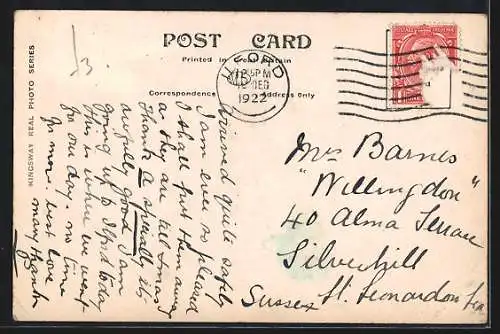 POST CARD
Printed in Great Britain
Correspondence
Address Only
KINGSWAY REAL PHOTO SERIES
13
ILFORD
12 15 PM
DEC
1922
arrived quite safely
I am ever so pleased
I shall put them away
as they are till Xmas
Thanks a specially its
awfully good. I am
going up to Ilford today
This is where we went
for our day. no time
for more. best love
many thanks
Mrs Barnes
"Willingdon"
40 Alma Terrace
Silverhill
St. Leonardon Sea
Sussex